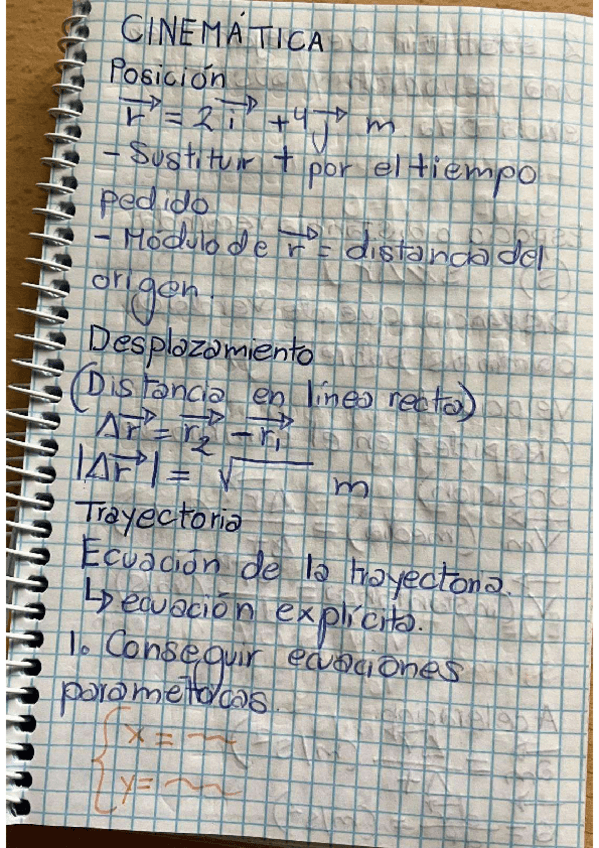 CINEMÁTICA
Posición
r⃗ = 2 i⃗ + 4 j⃗ m
- Sustituir t por el tiempo
pedido
- Módulo de r⃗ = distancia del
origen.
Desplazamiento
(Distancia en línea recta)
Δr⃗ = r⃗₂ - r⃗₁
|Δr⃗| = √ m
Trayectoria
Ecuación de la trayectoria.
↳ ecuación explícita.
1. Conseguir ecuaciones
parametricas.
{ x = ~
y = ~